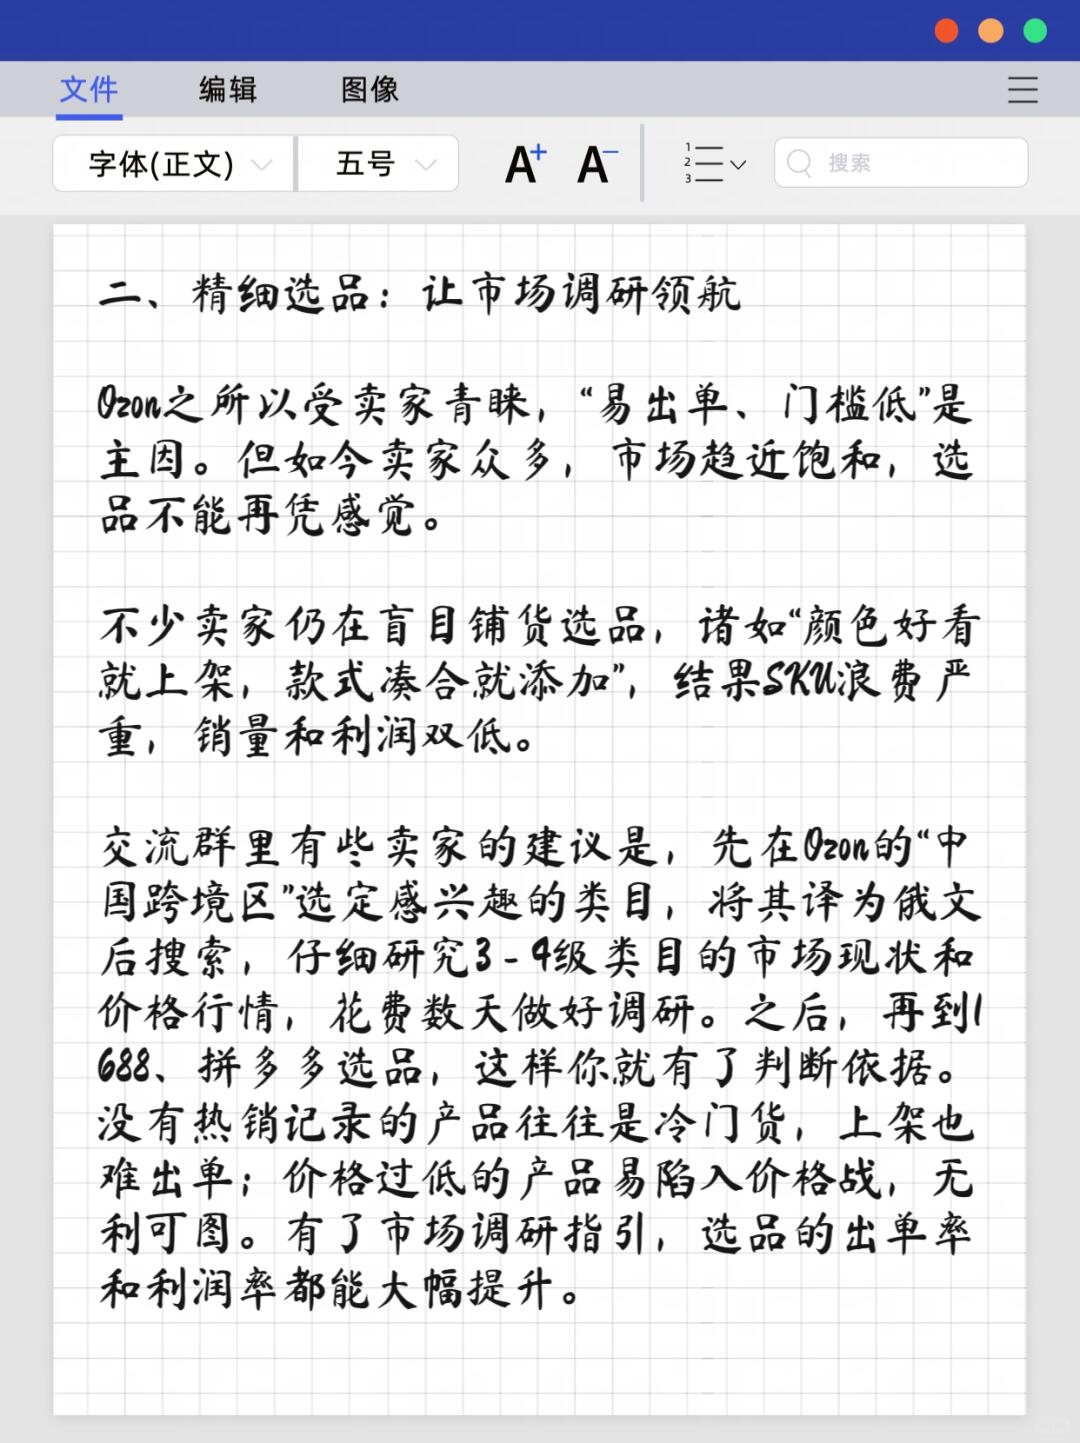 文件 编辑 图像
字体(正文) 五号 A+ A- 1 2 3 搜索
二、精细选品：让市场调研领航
Ozon之所以受卖家青睐，“易出单、门槛低”是
主因。但如今卖家众多，市场趋近饱和，选
品不能再凭感觉。
不少卖家仍在盲目铺货选品，诸如“颜色好看
就上架，款式凑合就添加”，结果SKU浪费严
重，销量和利润双低。
交流群里有些卖家的建议是，先在Ozon的“中
国跨境区”选定感兴趣的类目，将其译为俄文
后搜索，仔细研究3-4级类目的市场现状和
价格行情，花费数天做好调研。之后，再到1
688、拼多多选品，这样你就有了判断依据。
没有热销记录的产品往往是冷门货，上架也
难出单；价格过低的产品易陷入价格战，无
利可图。有了市场调研指引，选品的出单率
和利润率都能大幅提升。